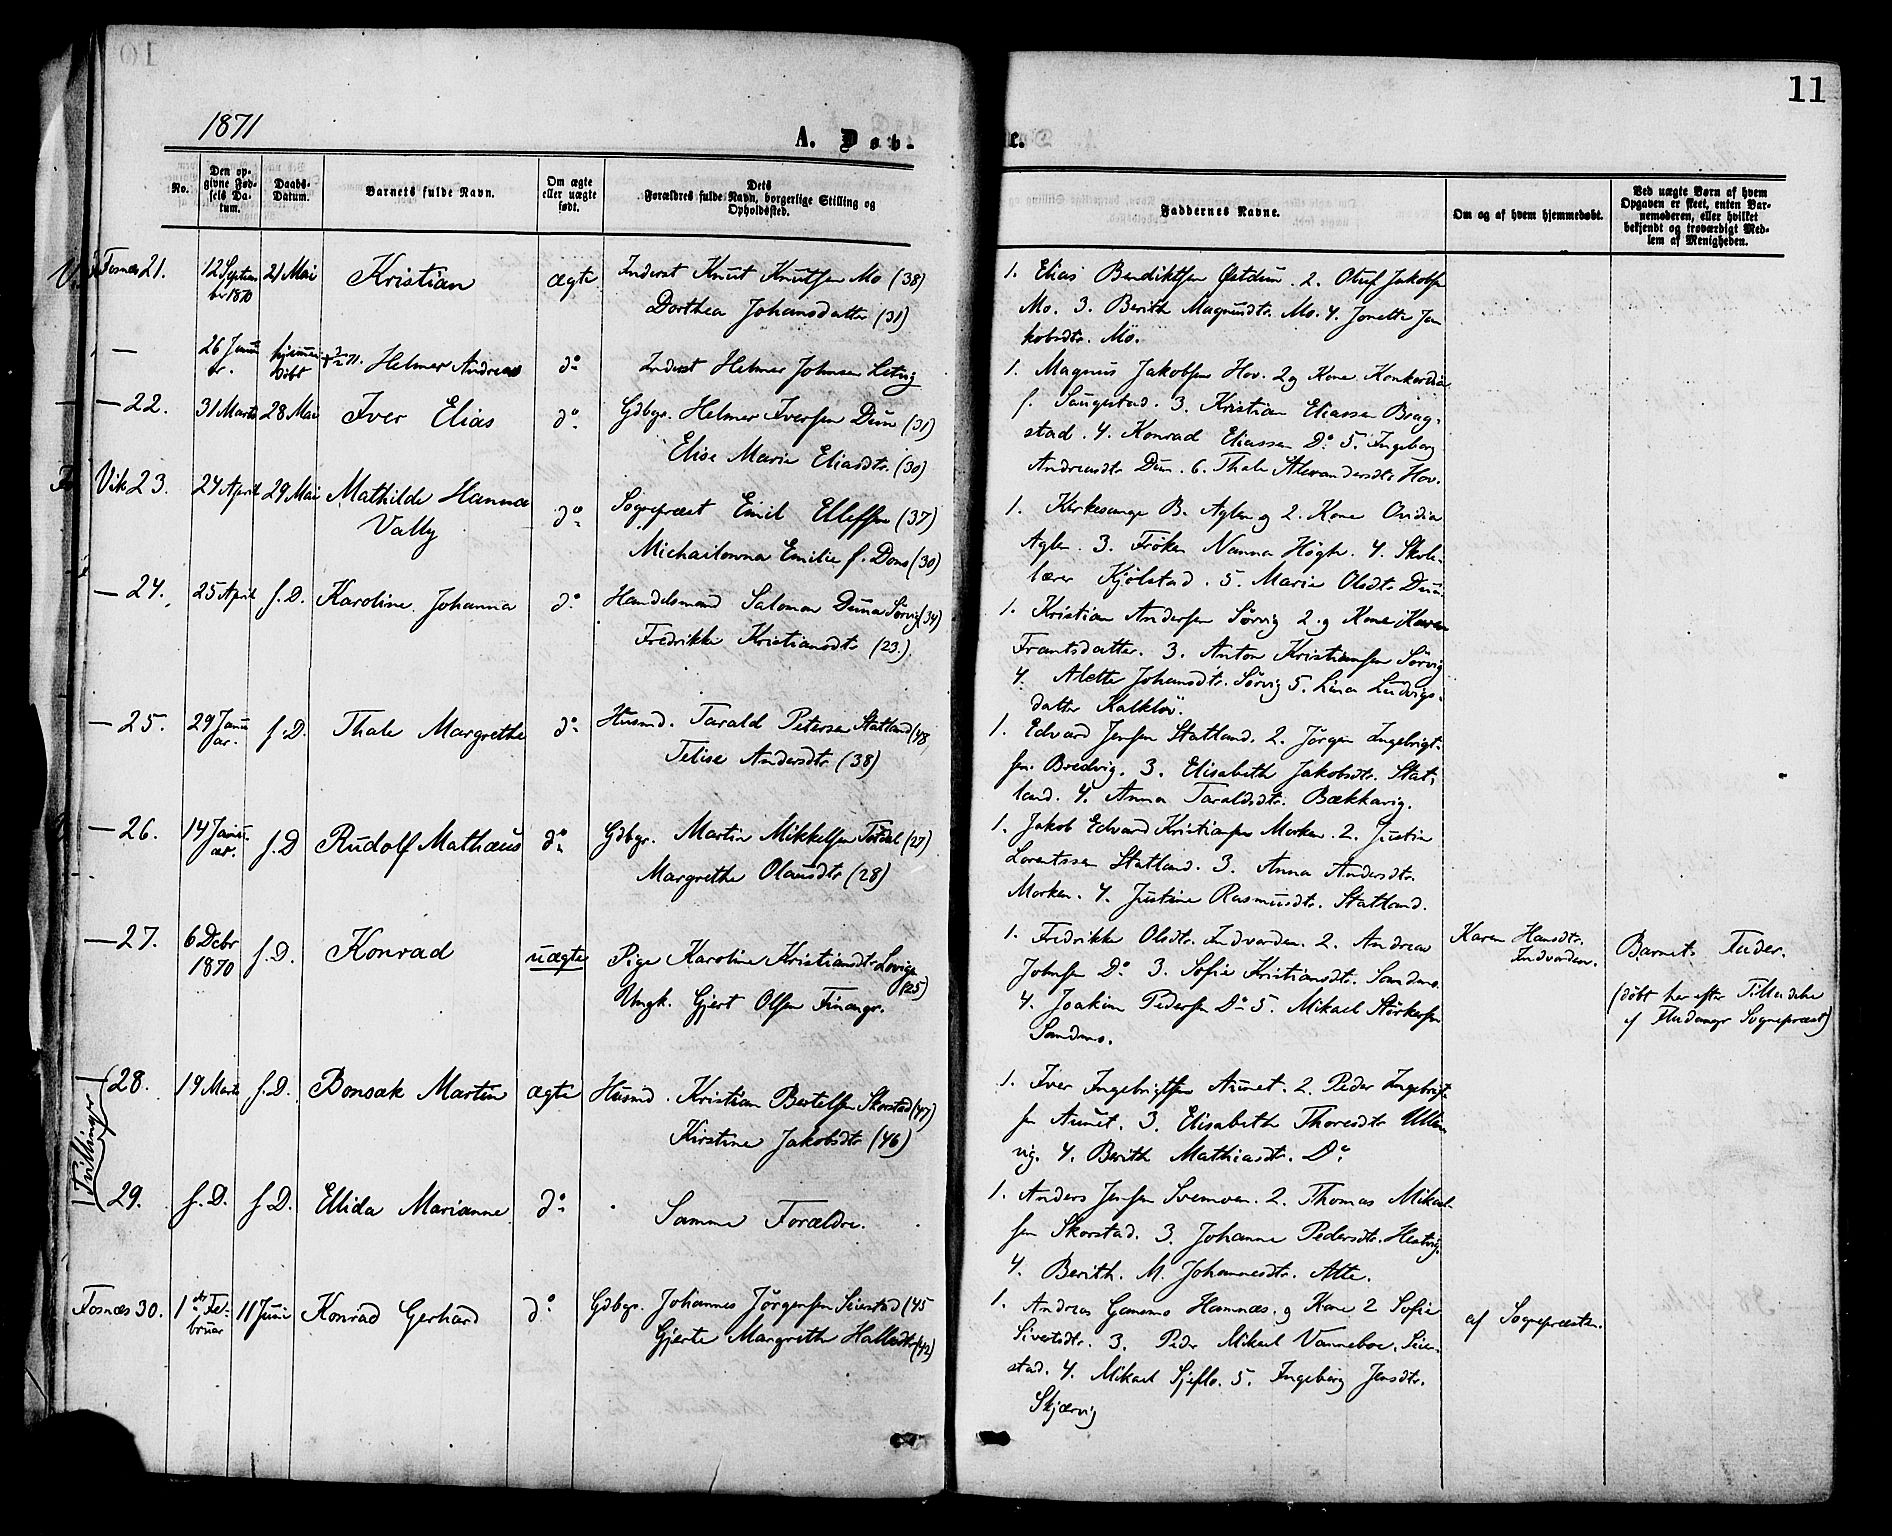 11
1871
A. Døbte.
No.
Den opgivne Fødsels Datum.
Daabs-Datum.
Barnets fulde Navn.
Om ægte eller uægte født.
Dets Forældres fulde Navn, borgerlige Stilling og Opholdssted.
Faddernes Navne.
Om og af hvem hjemmedøbt.
Ved uægte Børn af hvem Opgaven er skeet, enten Barnemoderen, eller hvilket bekjendt og troværdigt Medlem af Menigheden.
Fosnæs 21. 12 September 1870 21 Mai Kristian ægte Inderst Knut Knutsen Mo (38)
Dorthea Johansdatter (31)
1. Elias Bendiktsen Østduun. 2. Oluf Jakobsen
Mo. 3. Berith Magnusdtr. Mo. 4. Jonette Ja
kobsdtr. Mo.
— 26 Januar. hjemmedøbt Helmer Andreas do Inderst Helmer Johnsen
— 22. 31 Marts 28 Mai Iver Elias do Gdbgr. Helmer Iversen Duun (31)
Elise Marie Eliasdtr. (30)
1. Magnus Jakobsen Hov. 2 og Kone Konkordia
f. Saugestad. 3. Kristian Eliassen Brag-
stad. 4. Konrad Eliassen Do 5. Ingeborg
Andreasdtr. Duun. 6. Thale Alexandersdtr. Hov.
Vik 23. 24 April 29 Mai Mathilde Hanna
Vally do Sognepræst Emil Ellefsen (37)
Michailowna Emilie f. Dons (30)
1. Kirkesanger B. Aglen og 2. Kone Ovidia
Aglen. 3. Frøken Nanna Høgh. 4. Skole-
lærer Kjølstad. 5. Marie Olsdtr. Duun.
— 24. 25 April s. D. Karoline Johanna do Handelsmand Salomon Duna Sørvig (34)
Fredrikke Kristiansdtr. (23.)
1. Kristian Andersen Sørvig 2. og Kone Karen
Frantsdatter. 3. Anton Kristiansen Sørvig
4. Alette Johansdtr. Sørvig 5. Lina Ludvigs-
datter Kalkløv.
— 25. 29 Januar. s. D. Thale Margrethe do Husmd. Tarald Petersen Statland (48)
Telise Andersdtr. (38)
1. Edvard Jensen Statland. 2. Jørgen Ingebrigt-
sen Bredvig. 3. Elisabeth Jakobsdtr. Stat-
land. 4. Anna Taraldsdtr. Bækkavig.
— 26. 14 Januar. s. D Rudolf Mathæus do Gdbgr. Martin Mikkelsen Tøtdal (27)
Margrethe Olausdtr. (28)
1. Jakob Edvard Kristiansen Morken. 2. Justin
Lorentssen Statland. 3. Anna Andersdtr.
Morken. 4. Justine Rasmusdtr. Statland.
— 27. 6 Debr 1870 s. D. Konrad uægte Pige Karoline Kristiansdtr. Lovige (25)
Ungk. Gjert Olsen Finangr.
1. Fredrikke Olsdtr. Indvorden. 2. Andreas
Johnsen Do 3. Sofie Kristiansdtr. Sandmo.
4. Joakim Pedersen Do 5. Mikael Størkersen
Sandmo.
Karen Hansdtr.
Indvorden.
Barnets Fader.
(døbt her efter Tilladelse
af Fladangr Sognepræst)
Tvillinger
— 28. 19 Marts s. D. Bonsak Martin ægte Husmd. Kristian Bertelsen Skorstad (47)
Kirstine Jakobsdtr. (46)
1. Iver Ingebrigtsen Aunet. 2. Peder Ingebrigt-
sen Aunet. 3. Elisabeth Thoresdtr. Ullen
vig. 4. Berith Mathiasdtr. Do
29. s. D. s. D. Ellida Marianne do Samme Forældre.
1. Anders Jensen Svemoen. 2. Thomas Mikael-
sen Skorstad. 3. Johanne Pedersdtr. Hestvig.
4. Berith. M. Johannesdtr. Atte.
Fosnæs 30. 1ste Februar 11 Juni Konrad Gerhard do Gdbgr. Johannes Jørgensen Seierstad (45
Gjerte Margrethe Hallesdtr. (42)
1. Andreas Ganemo Hamnæs. og Kone 2 Sofie
Sivertsdtr. 3. Peder Mikael Vanneboe. Seier-
stad. 4. Mikael Sjeflo. 5. Ingeborg Jensdtr.
Skjærvig
af Sognepræsten.